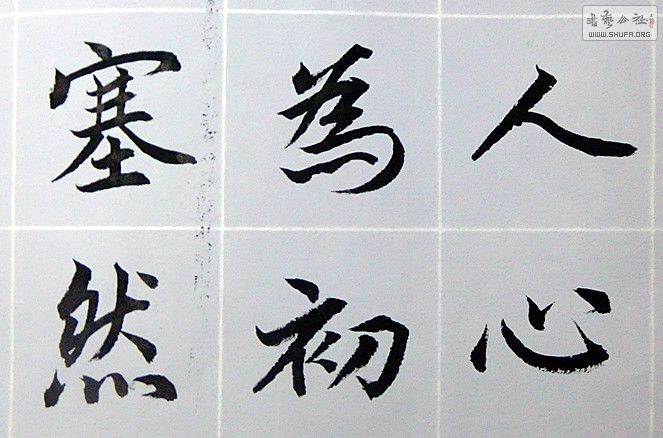 人心
為初
塞然
書藝公社
WWW.SHUFA.ORG